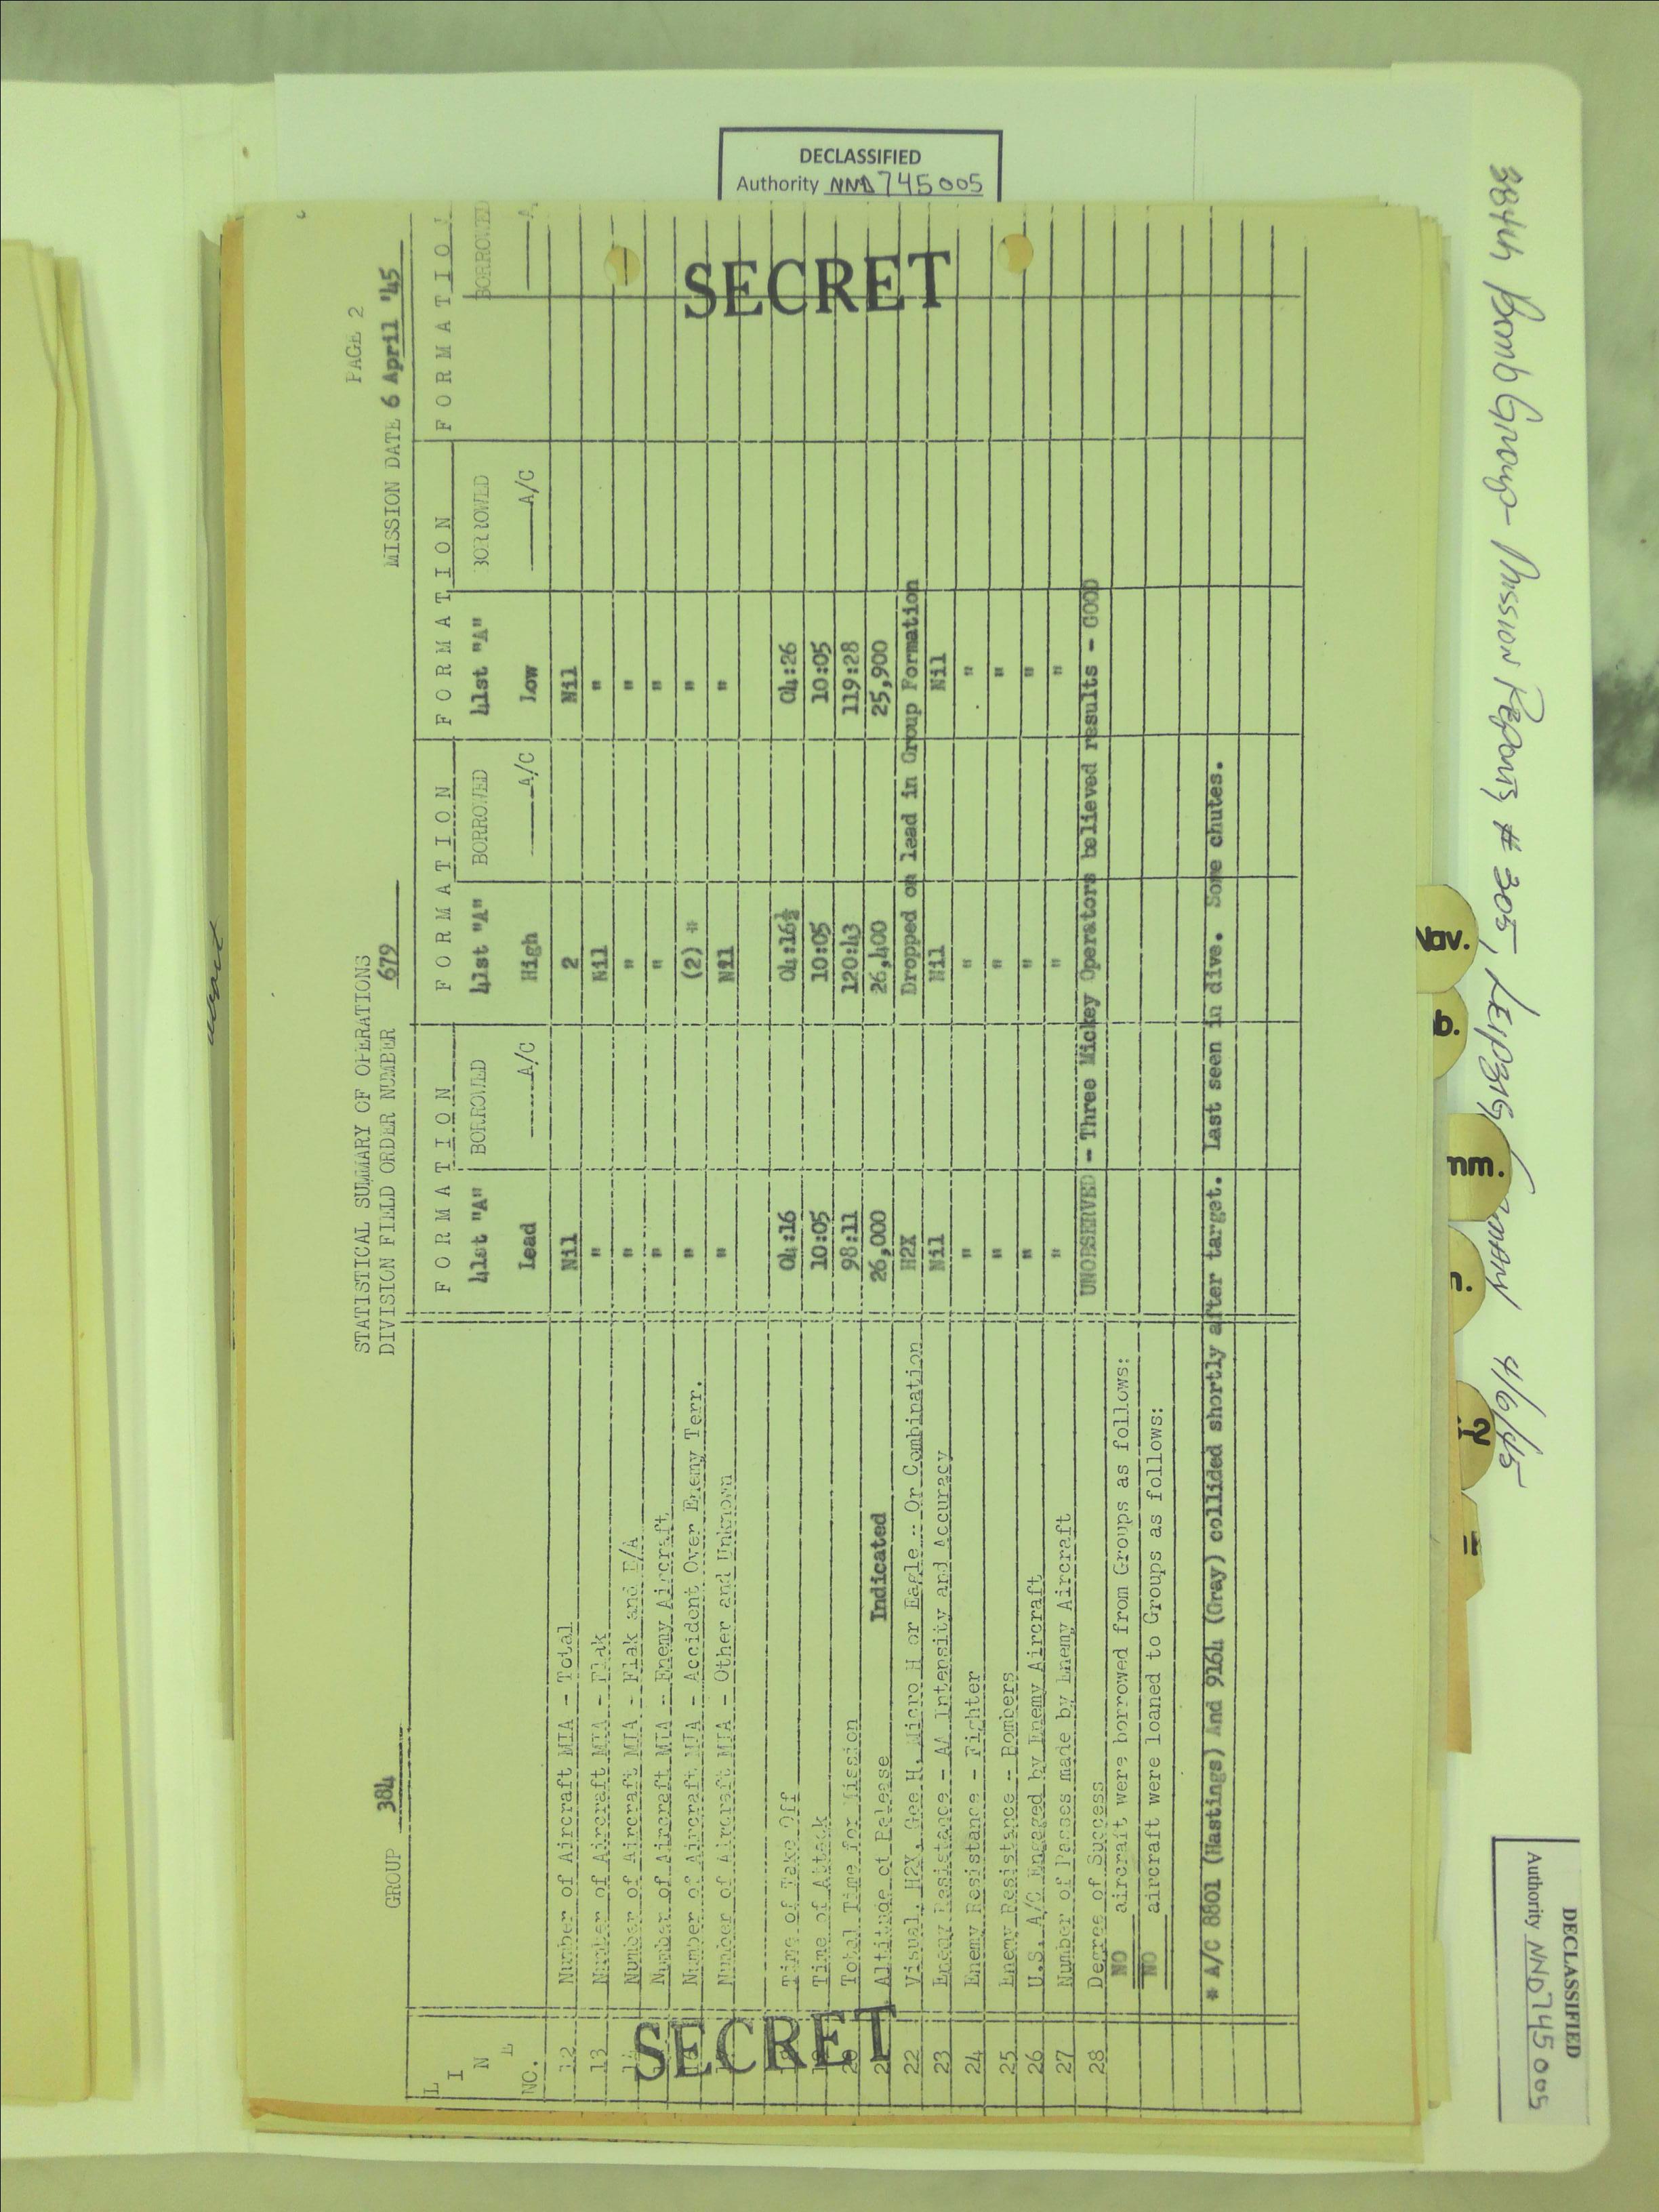 DECLASSIFIED
Authority NND 745005
PAGE 2
STATISTICAL SUMMARY OF OPERATIONS
GROUP 384 DIVISION FIELD ORDER NUMBER 679 MISSION DATE 6 April '45
L I N E NO.
FORMATION FORMATION FORMATION FORMATION
41st "A" BORROWED 41st "A" BORROWED 41st "A" BORROWED BORROWED
Lead A/C High A/C Low A/C A
12 Number of Aircraft MIA - Total Nil 2 Nil
13 Number of Aircraft MIA - Flak " Nil "
14 Number of Aircraft MIA - Flak and E/A " " "
Number of Aircraft MIA - Enemy Aircraft " " "
16 Number of Aircraft MIA - Accident Over Enemy Terr. " (2) * "
Number of Aircraft MIA - Other and Unknown " Nil "
Time of Take Off 04:16 04:16½ 04:26
19 Time of Attack 10:05 10:05 10:05
20 Total Time for Mission 98:11 120:43 119:28
21 Altitude of Release Indicated 26,000 26,400 25,900
22 Visual, H2X, Gee H, Micro H or Eagle -- Or Combination H2X Dropped on lead in Group Formation
23 Enemy Resistance - AA Intensity and Accuracy Nil Nil Nil
24 Enemy Resistance - Fighter " " "
25 Enemy Resistance -- Bombers " " "
26 U.S. A/C Engaged by Enemy Aircraft " " "
27 Number of Passes made by Enemy Aircraft " " "
28 Degree of Success UNOBSERVED - Three Mickey Operators believed results - GOOD
NO aircraft were borrowed from Groups as follows:
NO aircraft were loaned to Groups as follows:
* A/C 8801 (Hastings) And 9164 (Gray) collided shortly after target. Last seen in dive. Some chutes.
SECRET
SECRET
384th Bomb Group - Mission Reports # 305, Leipzig, Germany 4/6/45
Nav.
b.
mm.
DECLASSIFIED
Authority NND 745005